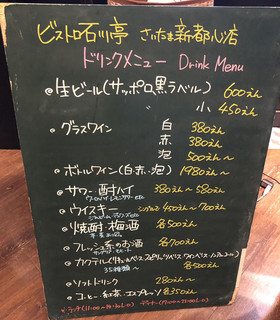 ビストロ石川亭 さいたま新都心店
ドリンクメニュー Drink Menu
◎生ビール(サッポロ黒ラベル) 600えん
小 450えん
◎グラスワイン 白 380えん
赤 380えん
泡 500えん〜
◎ボトルワイン(白・赤・泡) 1980えん〜
◎サワー・酎ハイ 380えん〜580えん
ウーロンハイ・レモンサワー etc
◎ウイスキー シングル 450えん〜700えん
◎焼酎・梅酒 各500えん
◎フレッシュ系のお酒 各700えん
◎カクテル
35種類〜 各500えん
◎ソフトドリンク 280えん〜
◎コーヒー・紅茶・エスプレッソ 各350えん